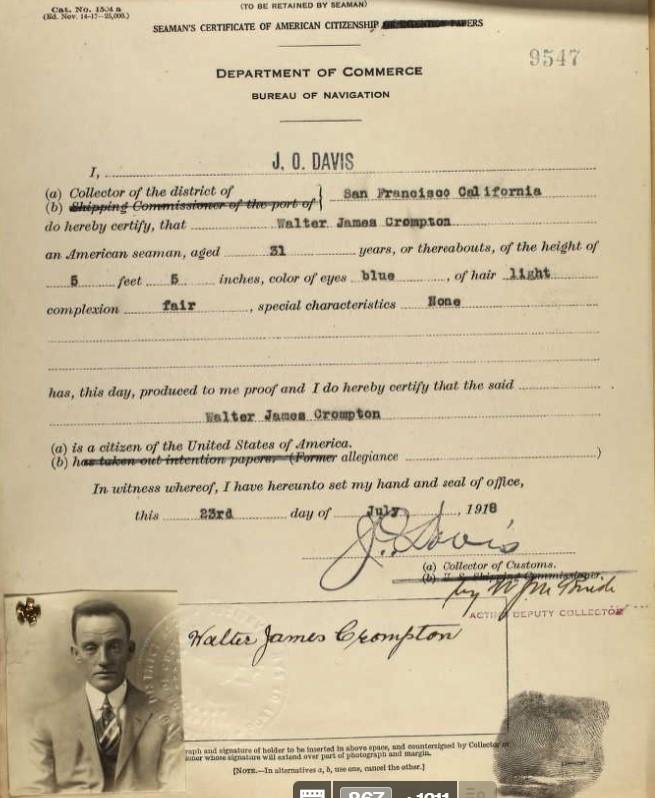 Cat. No. 1504 a
(Ed. Nov. 14-17—25,000.)
(TO BE RETAINED BY SEAMAN)
SEAMAN'S CERTIFICATE OF AMERICAN CITIZENSHIP OR INTENTION PAPERS
9547
DEPARTMENT OF COMMERCE
BUREAU OF NAVIGATION
I, J. O. DAVIS
(a) Collector of the district of
(b) Shipping Commissioner of the port of } San Francisco California
do hereby certify, that Walter James Crompton
an American seaman, aged 31 years, or thereabouts, of the height of
5 feet 5 inches, color of eyes blue, of hair light
complexion fair, special characteristics None
has, this day, produced to me proof and I do hereby certify that the said
Walter James Crompton
(a) is a citizen of the United States of America.
(b) has taken out intention papers. (Former allegiance )
In witness whereof, I have hereunto set my hand and seal of office,
this 23rd day of July, 1918
J.O. Davis
(a) Collector of Customs.
(b) U. S. Shipping Commissioner.
by
ACTING DEPUTY COLLECTOR
Walter James Crompton
raph and signature of holder to be inserted in above space, and countersigned by Collector or
ioner whose signature will extend over part of photograph and margin.
[NOTE.—In alternatives a, b, use one, cancel the other.]
867 1011